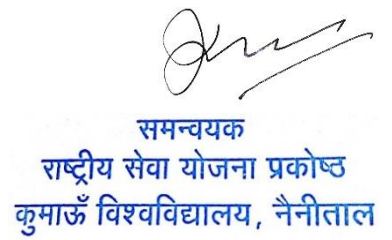 समन्वयक
राष्ट्रीय सेवा योजना प्रकोष्ठ
कुमाऊँ विश्वविद्यालय, नैनीताल